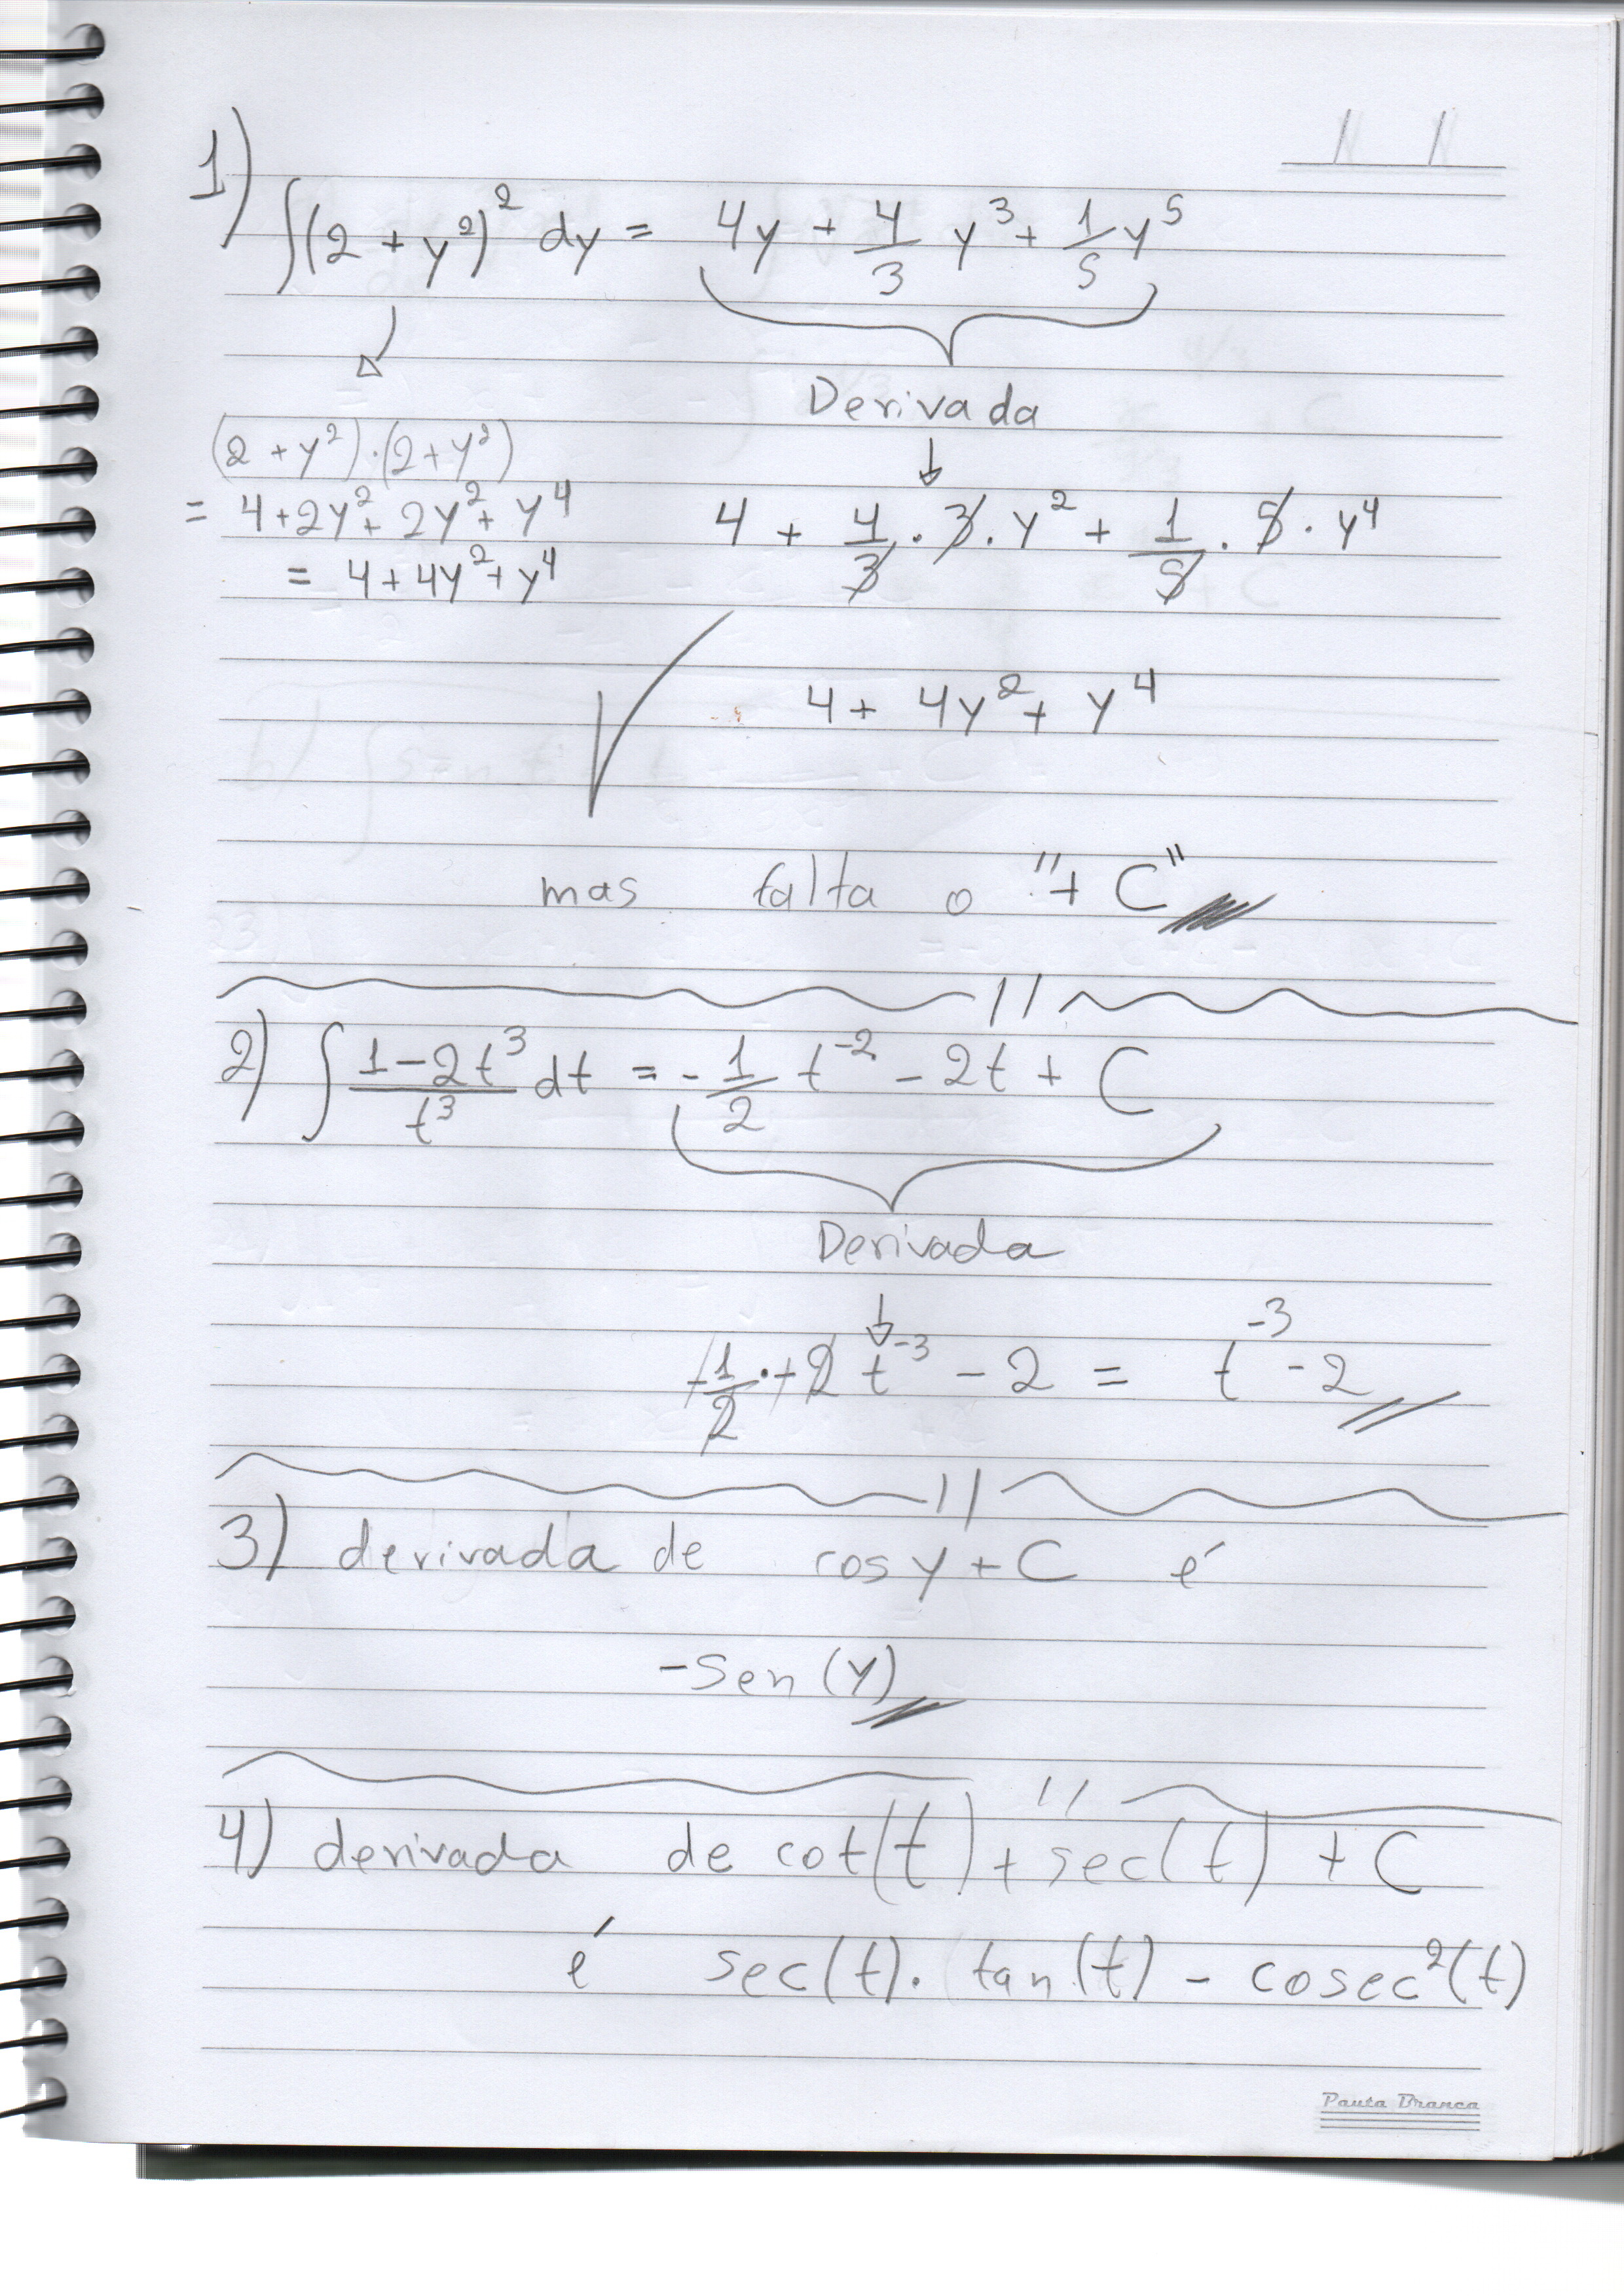 1) ∫(2 + y²)² dy = 4y + 4/3 y³ + 1/5 y⁵
Derivada
(2 + y²)·(2 + y²)
= 4 + 2y² + 2y² + y⁴
4 + 4/3 · 3 · y² + 1/5 · 5 · y⁴
= 4 + 4y² + y⁴
4 + 4y² + y⁴
mas falta o "+ C"
2) ∫ 1 - 2t³/t³ dt = - 1/2 t⁻² - 2t + C
Derivada
-1/2 · -2 t⁻³ - 2 = t⁻³ - 2
3) derivada de cos y + C é
- sen (y)
4) derivada de cot(t) + sec(t) + C
é sec(t) · tan(t) - cosec²(t)
Pauta Branca